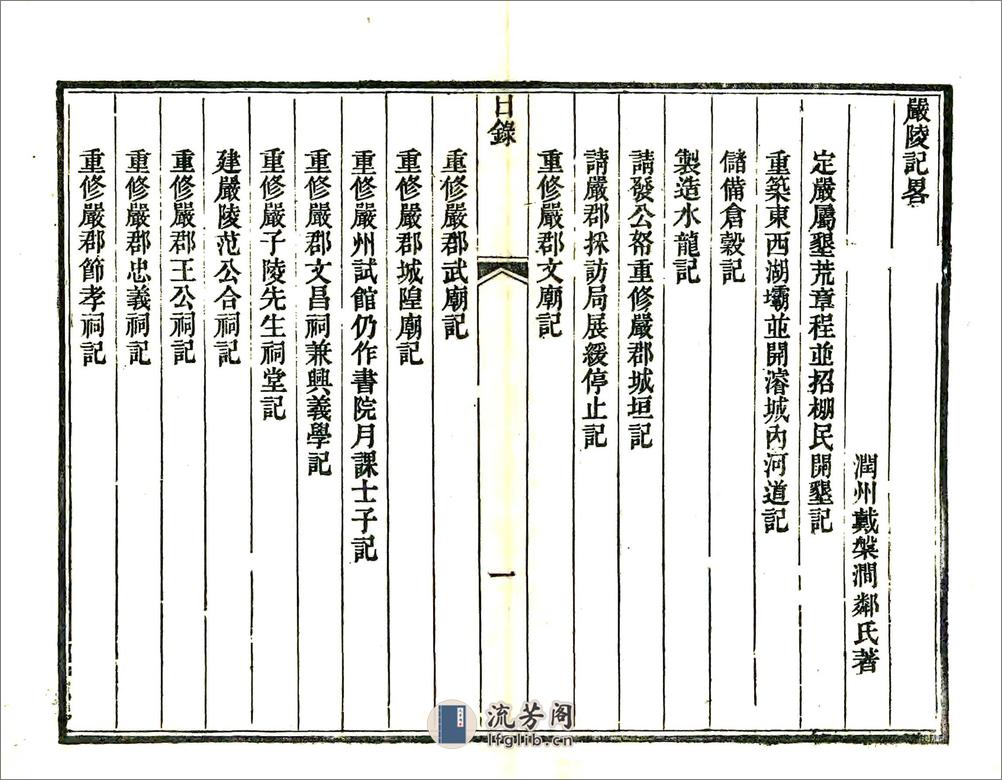 嚴陵記畧
潤州戴槃澗鄰氏著
定嚴屬墾荒章程並招棚民開墾記
重築東西湖壩並開濬城內河道記
儲備倉穀記
製造水龍記
請發公帑重修嚴郡城垣記
請嚴郡採訪局展緩停止記
重修嚴郡文廟記
目錄
一
重修嚴郡武廟記
重修嚴郡城隍廟記
重修嚴州試館仍作書院月課士子記
重修嚴郡文昌祠兼興義學記
重修嚴子陵先生祠堂記
建嚴陵范公合祠記
重修嚴郡王公祠記
重修嚴郡忠義祠記
重修嚴郡節孝祠記
流芳阁
lfglib.cn